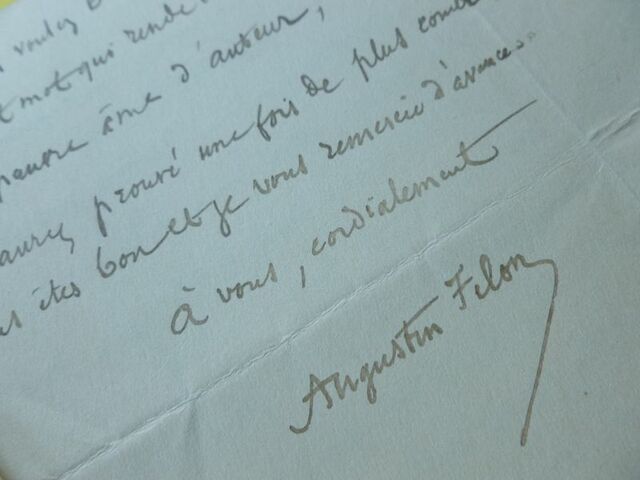 voulez
mot qui rende
pauvre âme d'auteur,
aurez prouvé une fois de plus com
êtes bon et je vous remercie d'avance.
à vous, cordialement
Augustin Filon